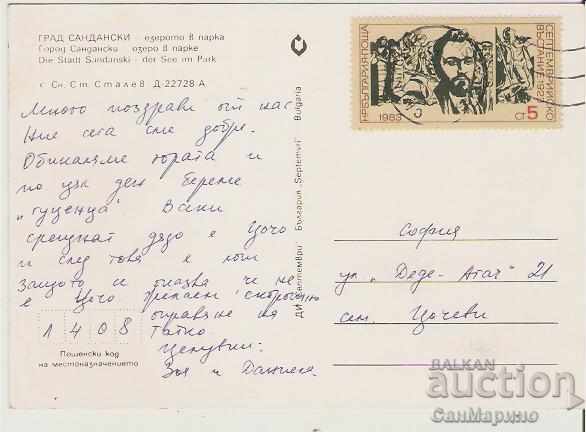 ГРАД САНДАНСКИ - езерото в парка
Город Сандански - озеро в парке
Die Stadt Sandanski - der See im Park
г Сн. Ст. Сталев Д-22728-А
Много поздрави от нас
Ние сега сме добре.
Обикаляме гората и
по цял ден береме
„гуценца" Всеки
срещнат дядо е Цочо
и след това е
защото се оказва че не
е Цочо
оправяне на
Татко
Целувки:
и Даниела
1408
Пощенски код
на местоназначението
ДИ „Септември" България „Septemvri" Bulgaria
НР БЪЛГАРИЯ · ПОЩА
1983
СЕПТЕМВРИЙСКО
ВЪСТАНИЕ 1923
СТ 5
София
ул „Деде-Агач" 21
сем. Цочеви
BALKAN
auction
СанМарино